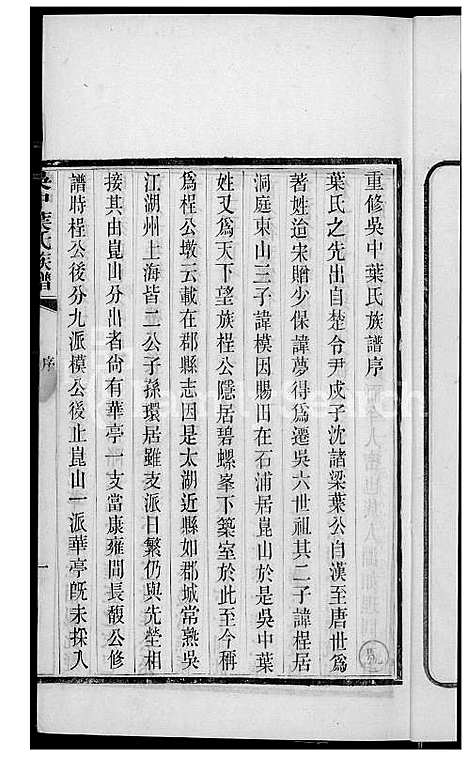 重修吳中葉氏族譜序
葉氏之先出自楚令尹戍子沈諸梁葉公自漢至唐世爲
著姓迨宋贈少保諱夢得爲遷吳六世祖其二子諱桯居
洞庭東山三子諱模因賜田在石浦居崑山於是吳中葉
姓又爲天下望族桯公隱居碧螺峯下築室於此至今稱
爲桯公墩云載在郡縣志因是太湖近縣如郡城常熟吳
江湖州上海皆二公子孫環居雖支派日繁仍與先塋相
接其由崑山分出者尙有華亭一支當康雍間長馥公修
譜時桯公後分九派模公後止崑山一派華亭旣未採入
吳中葉氏族譜
序
一